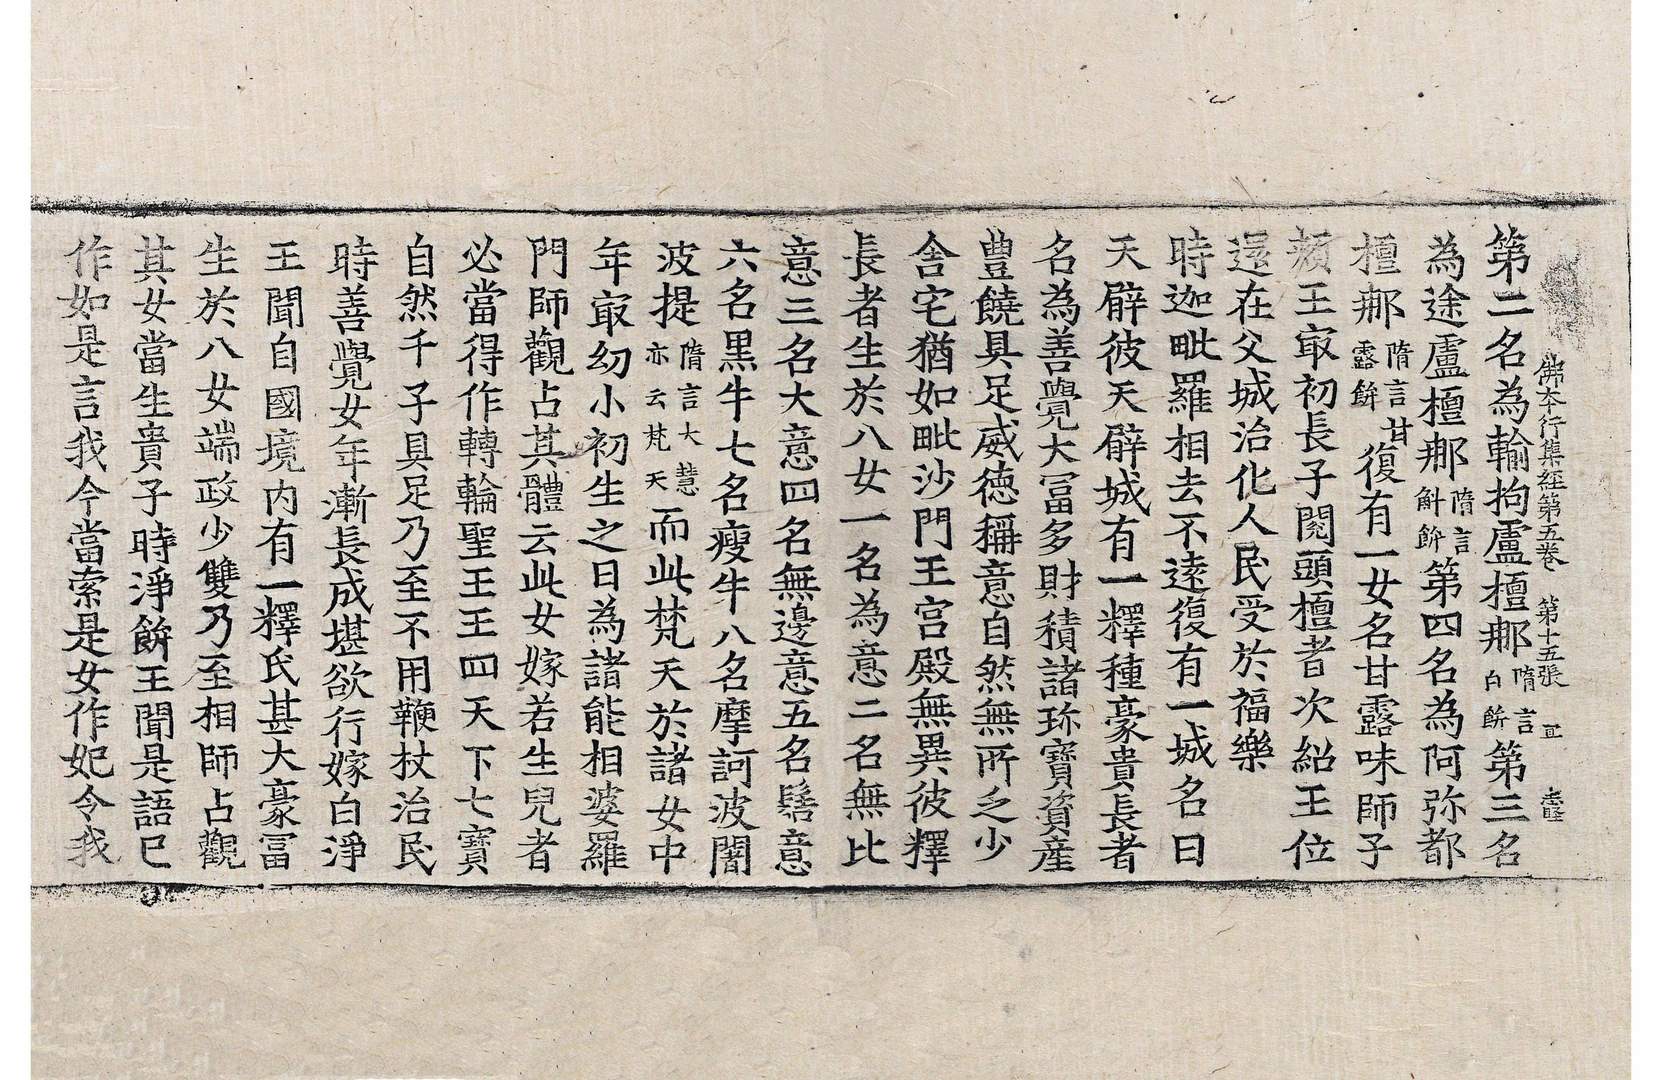 佛本行集經第五卷　第十五張
第二名為輸拘盧檀那隋言白飯第三名
為途盧檀那隋言斛飯第四名為阿弥都
檀那隋言甘露飯復有一女名甘露味師子
頰王冣初長子閱頭檀者次紹王位
還在父城治化人民受於福樂
時迦毗羅相去不遠復有一城名曰
天臂彼天臂城有一釋種豪貴長者
名為善覺大冨多財積諸珎寶資產
豊饒具足威德稱意自然無所乏少
舍宅猶如毗沙門王宮殿無異彼釋
長者生於八女一名為意二名無比
意三名大意四名無邊意五名髻意
六名黑牛七名瘦牛八名摩訶波闍
波提隋言大慧亦云梵天而此梵天於諸女中
年冣幼小初生之日為諸能相婆羅
門師觀占其體云此女嫁若生兒者
必當得作轉輪聖王王四天下七寶
自然千子具足乃至不用鞭杖治民
時善覺女年漸長成堪欲行嫁白淨
王聞自國境内有一釋氏甚大豪冨
生於八女端政少雙乃至相師占觀
其女當生貴子時淨飯王聞是語已
作如是言我今當索是女作妃令我